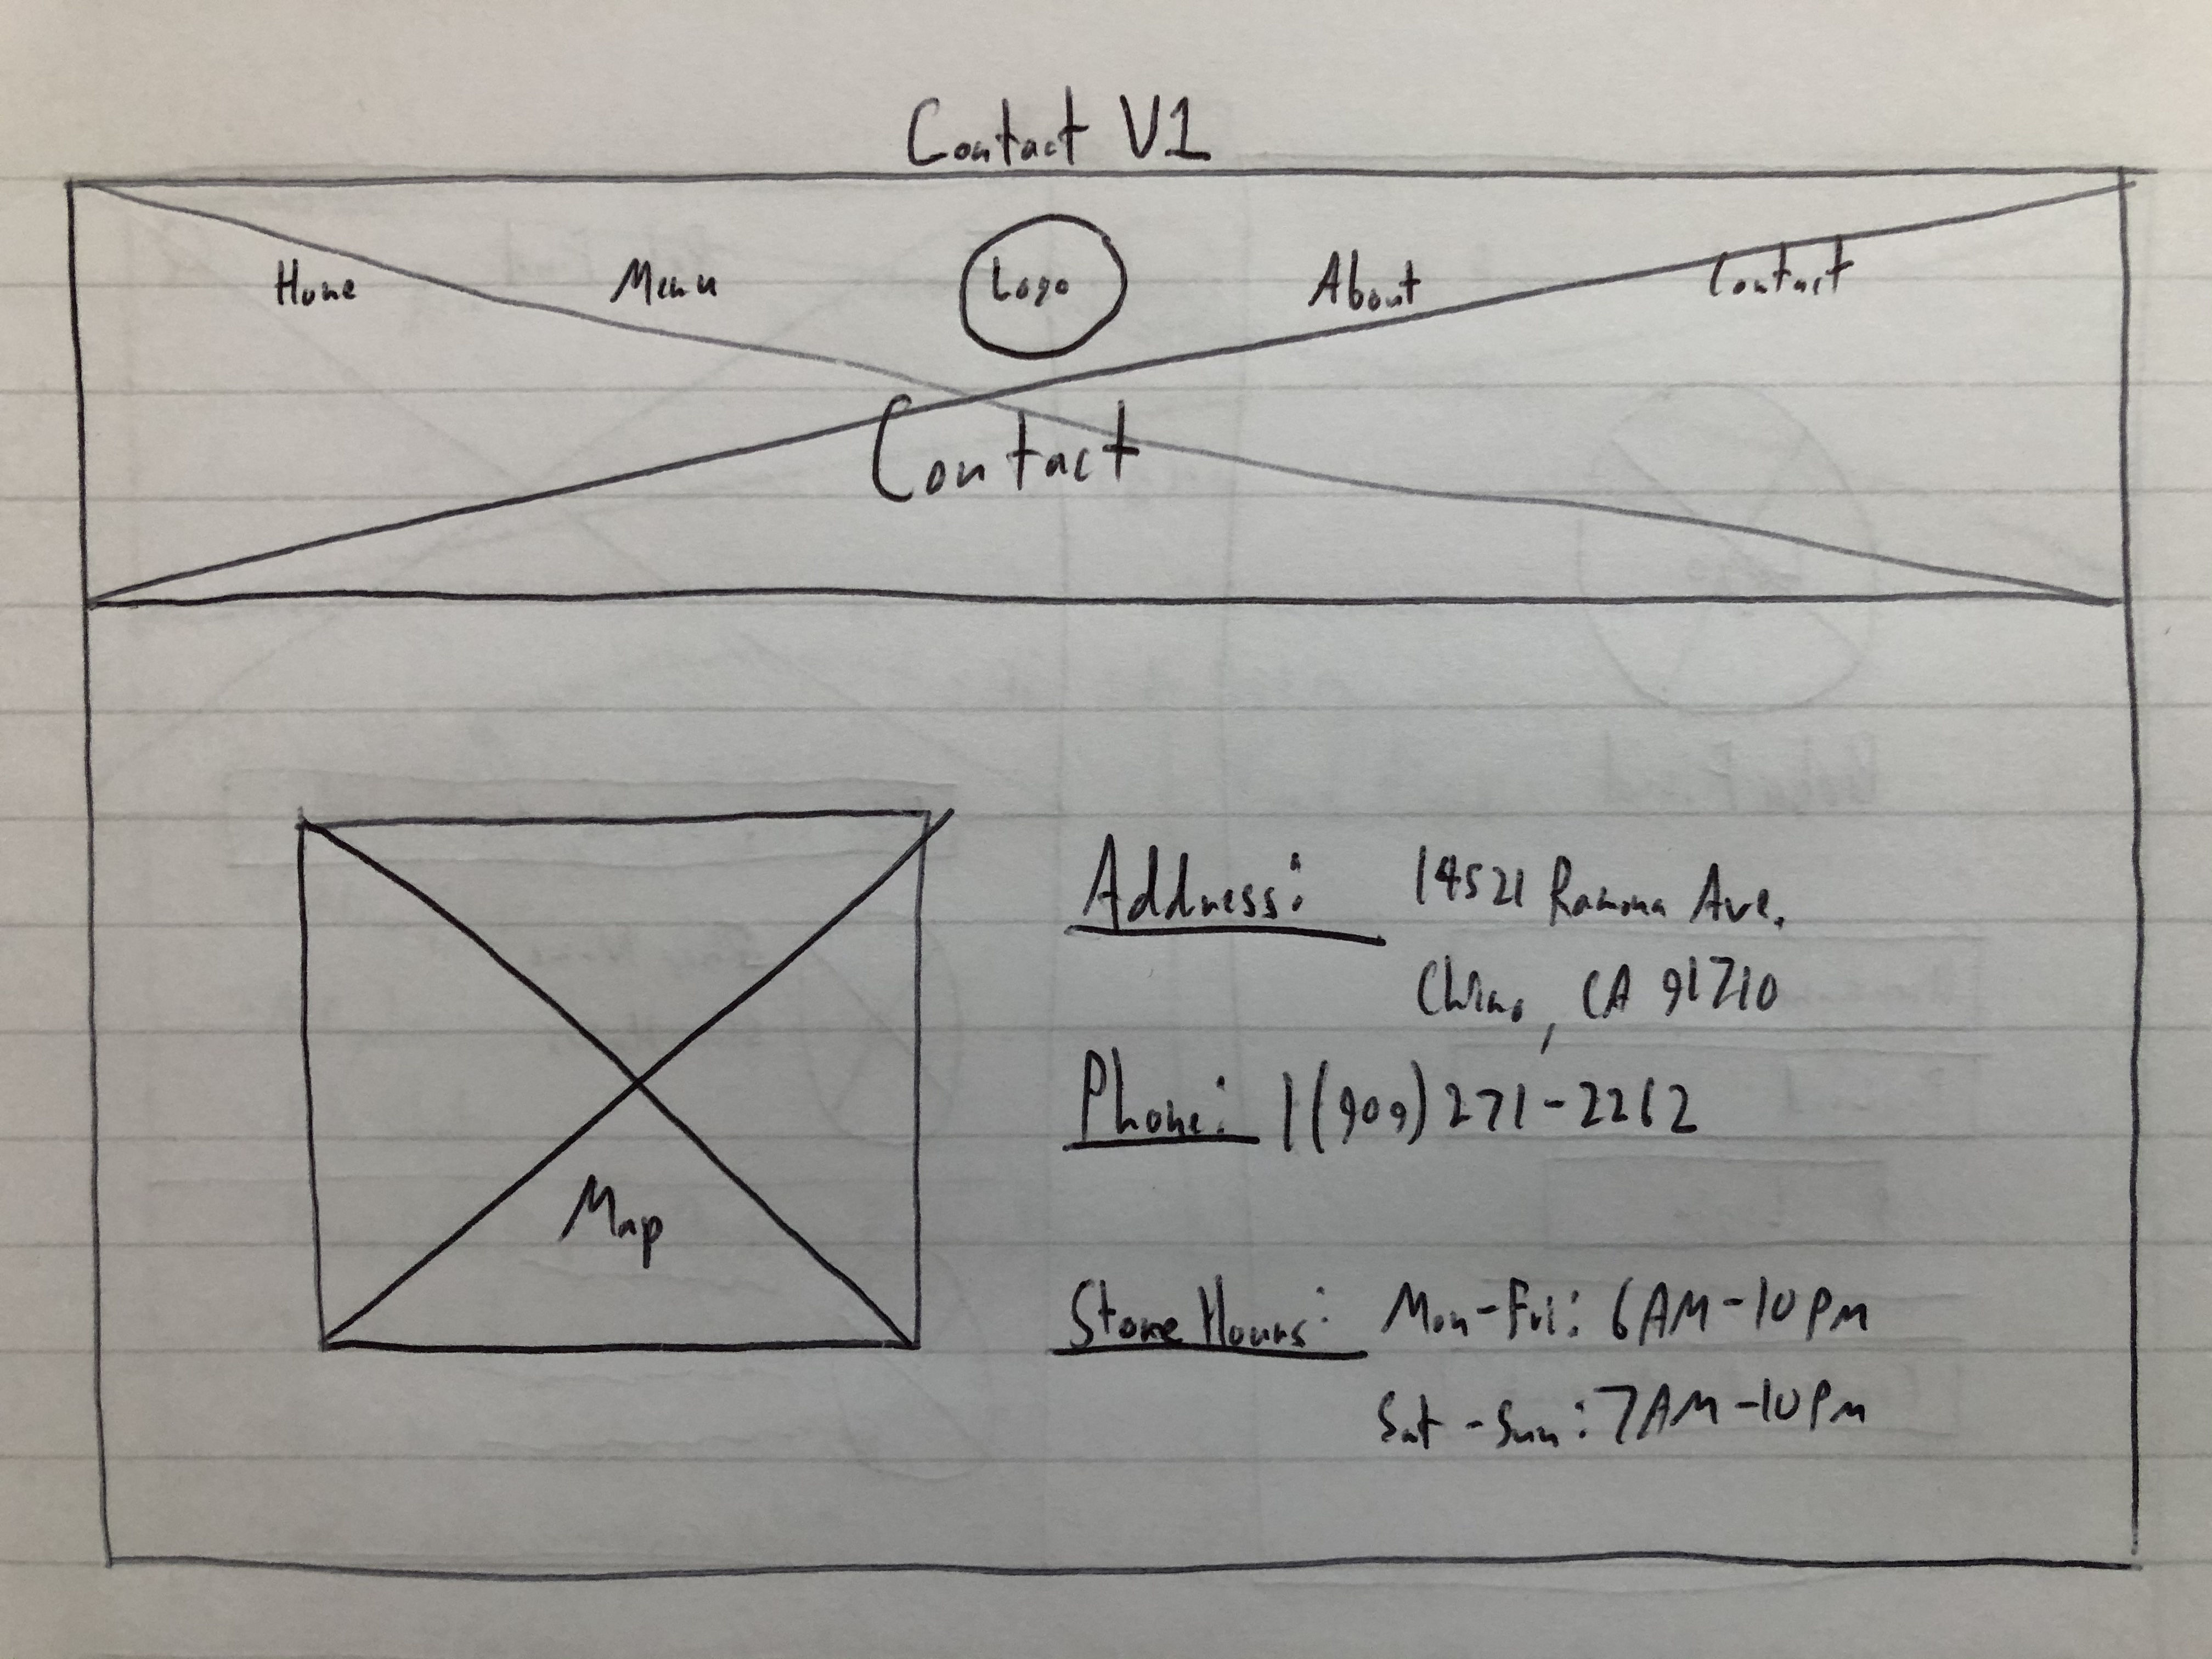 Contact V1
Home Menu Logo About Contact
Contact
Address: 14521 Ramona Ave.
Chino, CA 91710
Phone: 1(909) 271-2262
Map
Store Hours: Mon-Fri: 6AM-10PM
Sat-Sun: 7AM-10PM